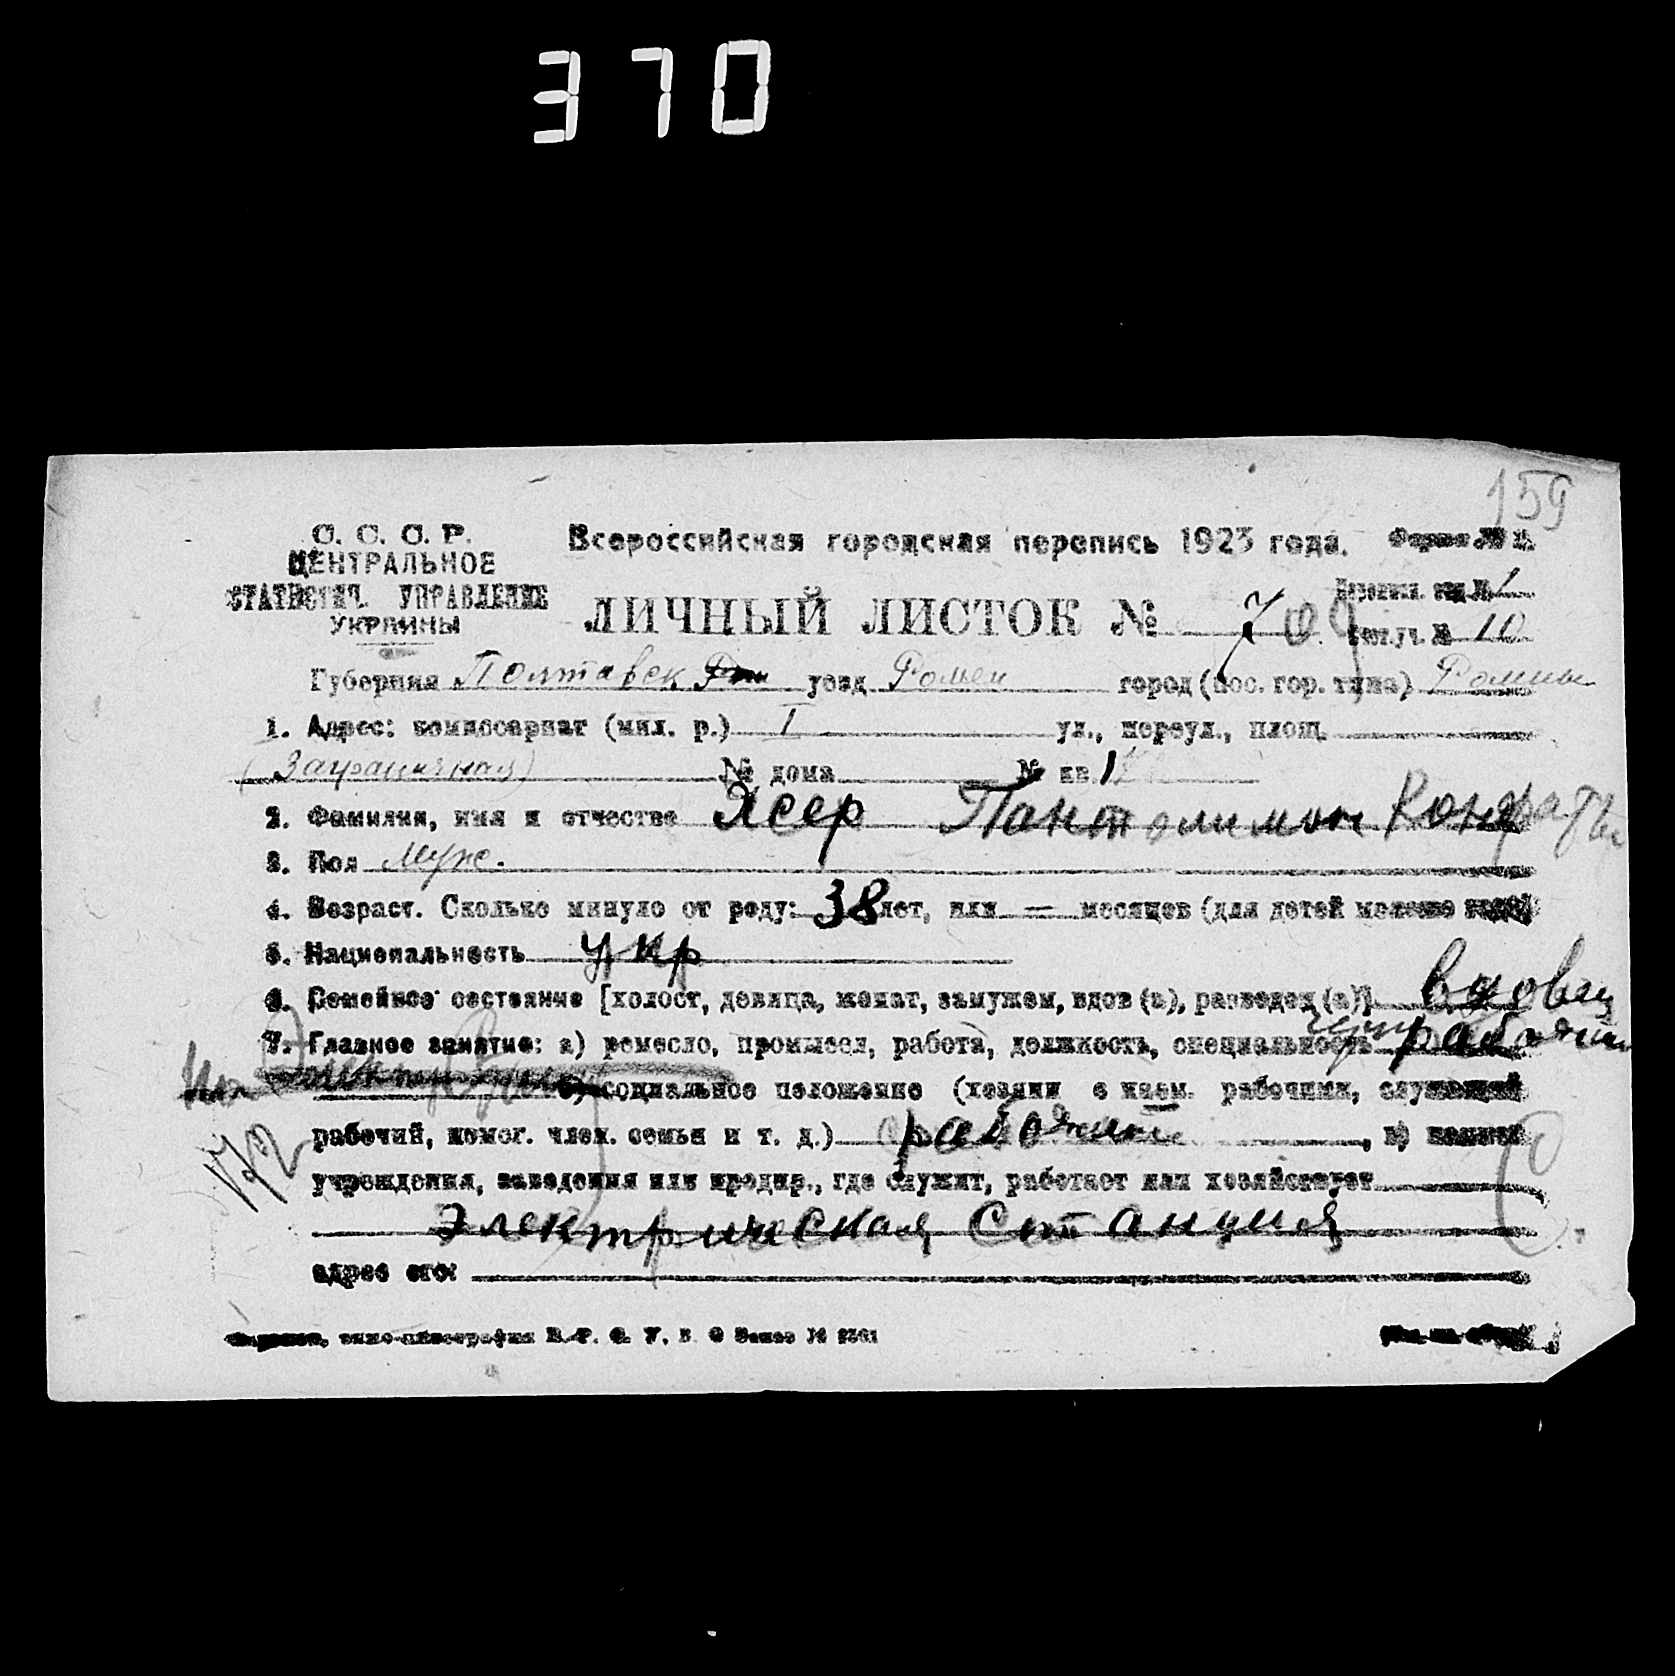 370
159
С. С. С. Р.
ЦЕНТРАЛЬНОЕ
СТАТИСТИЧ. УПРАВЛЕНИЕ
УКРАИНЫ
Всероссийская городская перепись 1923 года. Форма № 1.
Переписн. отд. № 1
ЛИЧНЫЙ ЛИСТОК № 709
Счет. уч. № 10
Губерния Полтавск уезд Ромен город (пос. гор. типа) Ромны
1. Адрес: комиссариат (мил. р.) I ул., переул., площ.
(Заграничная) № дома № кв 1
2. Фамилия, имя и отчество Ясер Пантолимон Кондратьи
3. Пол Муж.
4. Возраст. Сколько минуло от роду: 38 лет, или — месяцев (для детей моложе года)
5. Национальность укр
6. Семейное состояние [холост, девица, женат, замужем, вдов (а), разведен (а)] вдовец
7. Главное занятие: а) ремесло, промысел, работа, должность, специальность рабочий
б) социальное положение (хозяин с наем. рабочими, служащий
рабочий, помог. член. семьи и т. д.) рабочий, в) название
учреждения, заведения или предпр., где служит, работает или хозяйствует
Электрическая Станция
адрес его: